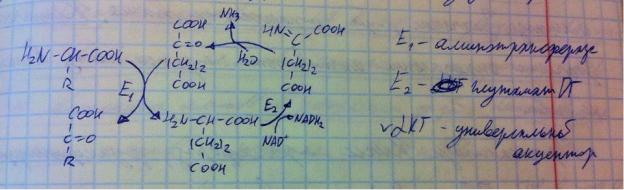 NH₃
COOH
C=O
(CH₂)₂
COOH
H₂O
HN=C COOH
(CH₂)₂
COOH
H₂N-CH-COOH
R
E₁
COOH
C=O
R
H₂N-CH-COOH
(CH₂)₂
COOH
E₂
NADH₂
NAD⁺
E₁ - аминотрансфераза
E₂ - глутамат ДГ
√ αКТ - универсальный
акцептор